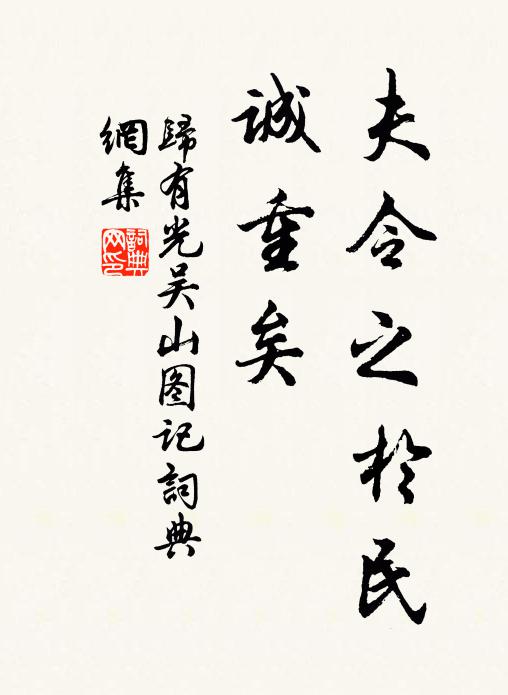 夫令之於民
誠重矣
歸有光吴山图记詞典
網集
詞典
网印